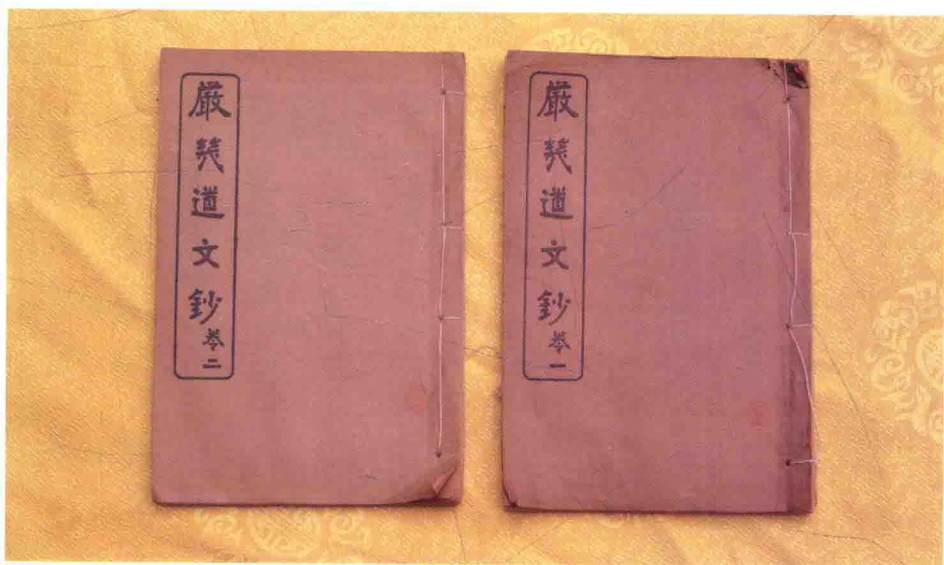 嚴幾道文鈔卷一
嚴幾道文鈔卷二